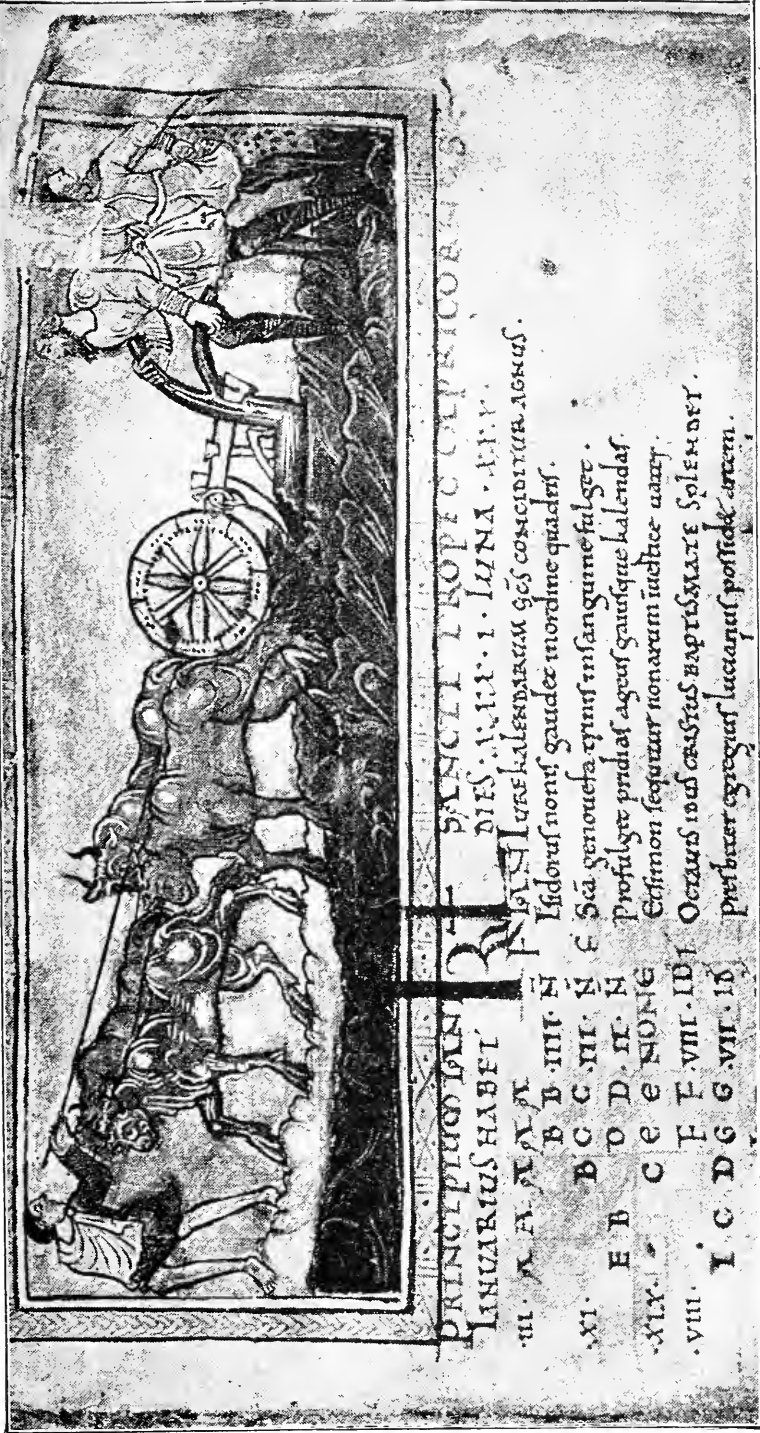 PRINCIPIUM IAN SANCIT TROPEC CAPRICORNUS
IANUARIUS HABET DIES · XXXI · LUNA · XXX ·
·III· A A A A A F IANI IANI KALENDARUM CONCIDITUR AGNUS ·
B B ·IIII· N Isidoruſ noniſ gaudet inordine quadriſ.
·XI· B C C ·III· N Sca genouefa inſanguine fulget ·
E B D D ·II· N Profulget pridiaſ kalendaſ
·XIX· C e e NONE Etſimon ſequitur nonarum
·VIII· F F ·VIII· ID OCTAUIS IDUS CRISTUS BAPTISMATE SPLENDET ·
I C D G G ·VII· ID Preſbiter egreguiſ lucianuſ poſſidet arcem ·